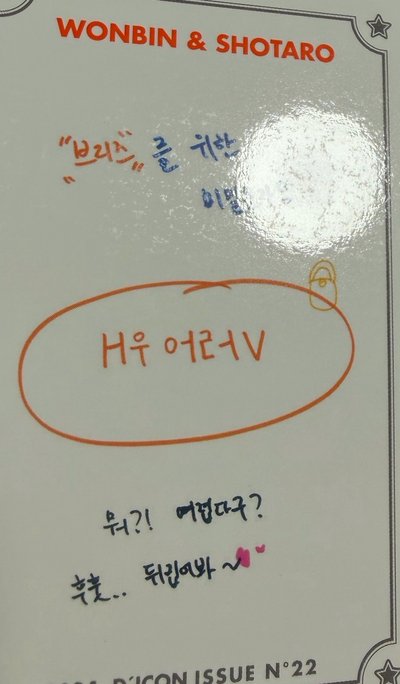 WONBIN & SHOTARO
"브리즈"를 위한
H우 어러V
뭐?! 어렵다구?
후훗.. 뒤집어봐~
D'ICON ISSUE N°22